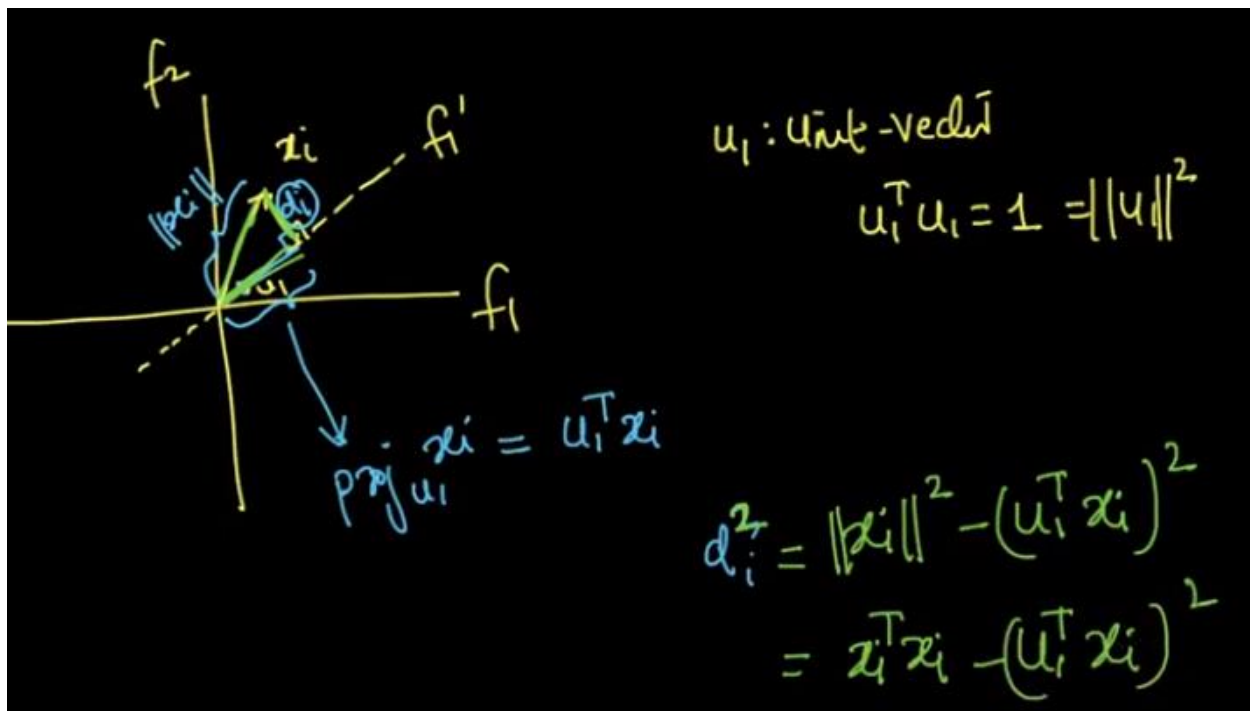 f₂
xᵢ
f₁'
||xᵢ||
dᵢ
u₁
f₁
projᵤ₁ xᵢ = u₁ᵀ xᵢ
u₁ : Unit-vector
u₁ᵀ u₁ = 1 = ||u₁||²
dᵢ² = ||xᵢ||² - (u₁ᵀ xᵢ)²
= xᵢᵀ xᵢ - (u₁ᵀ xᵢ)²